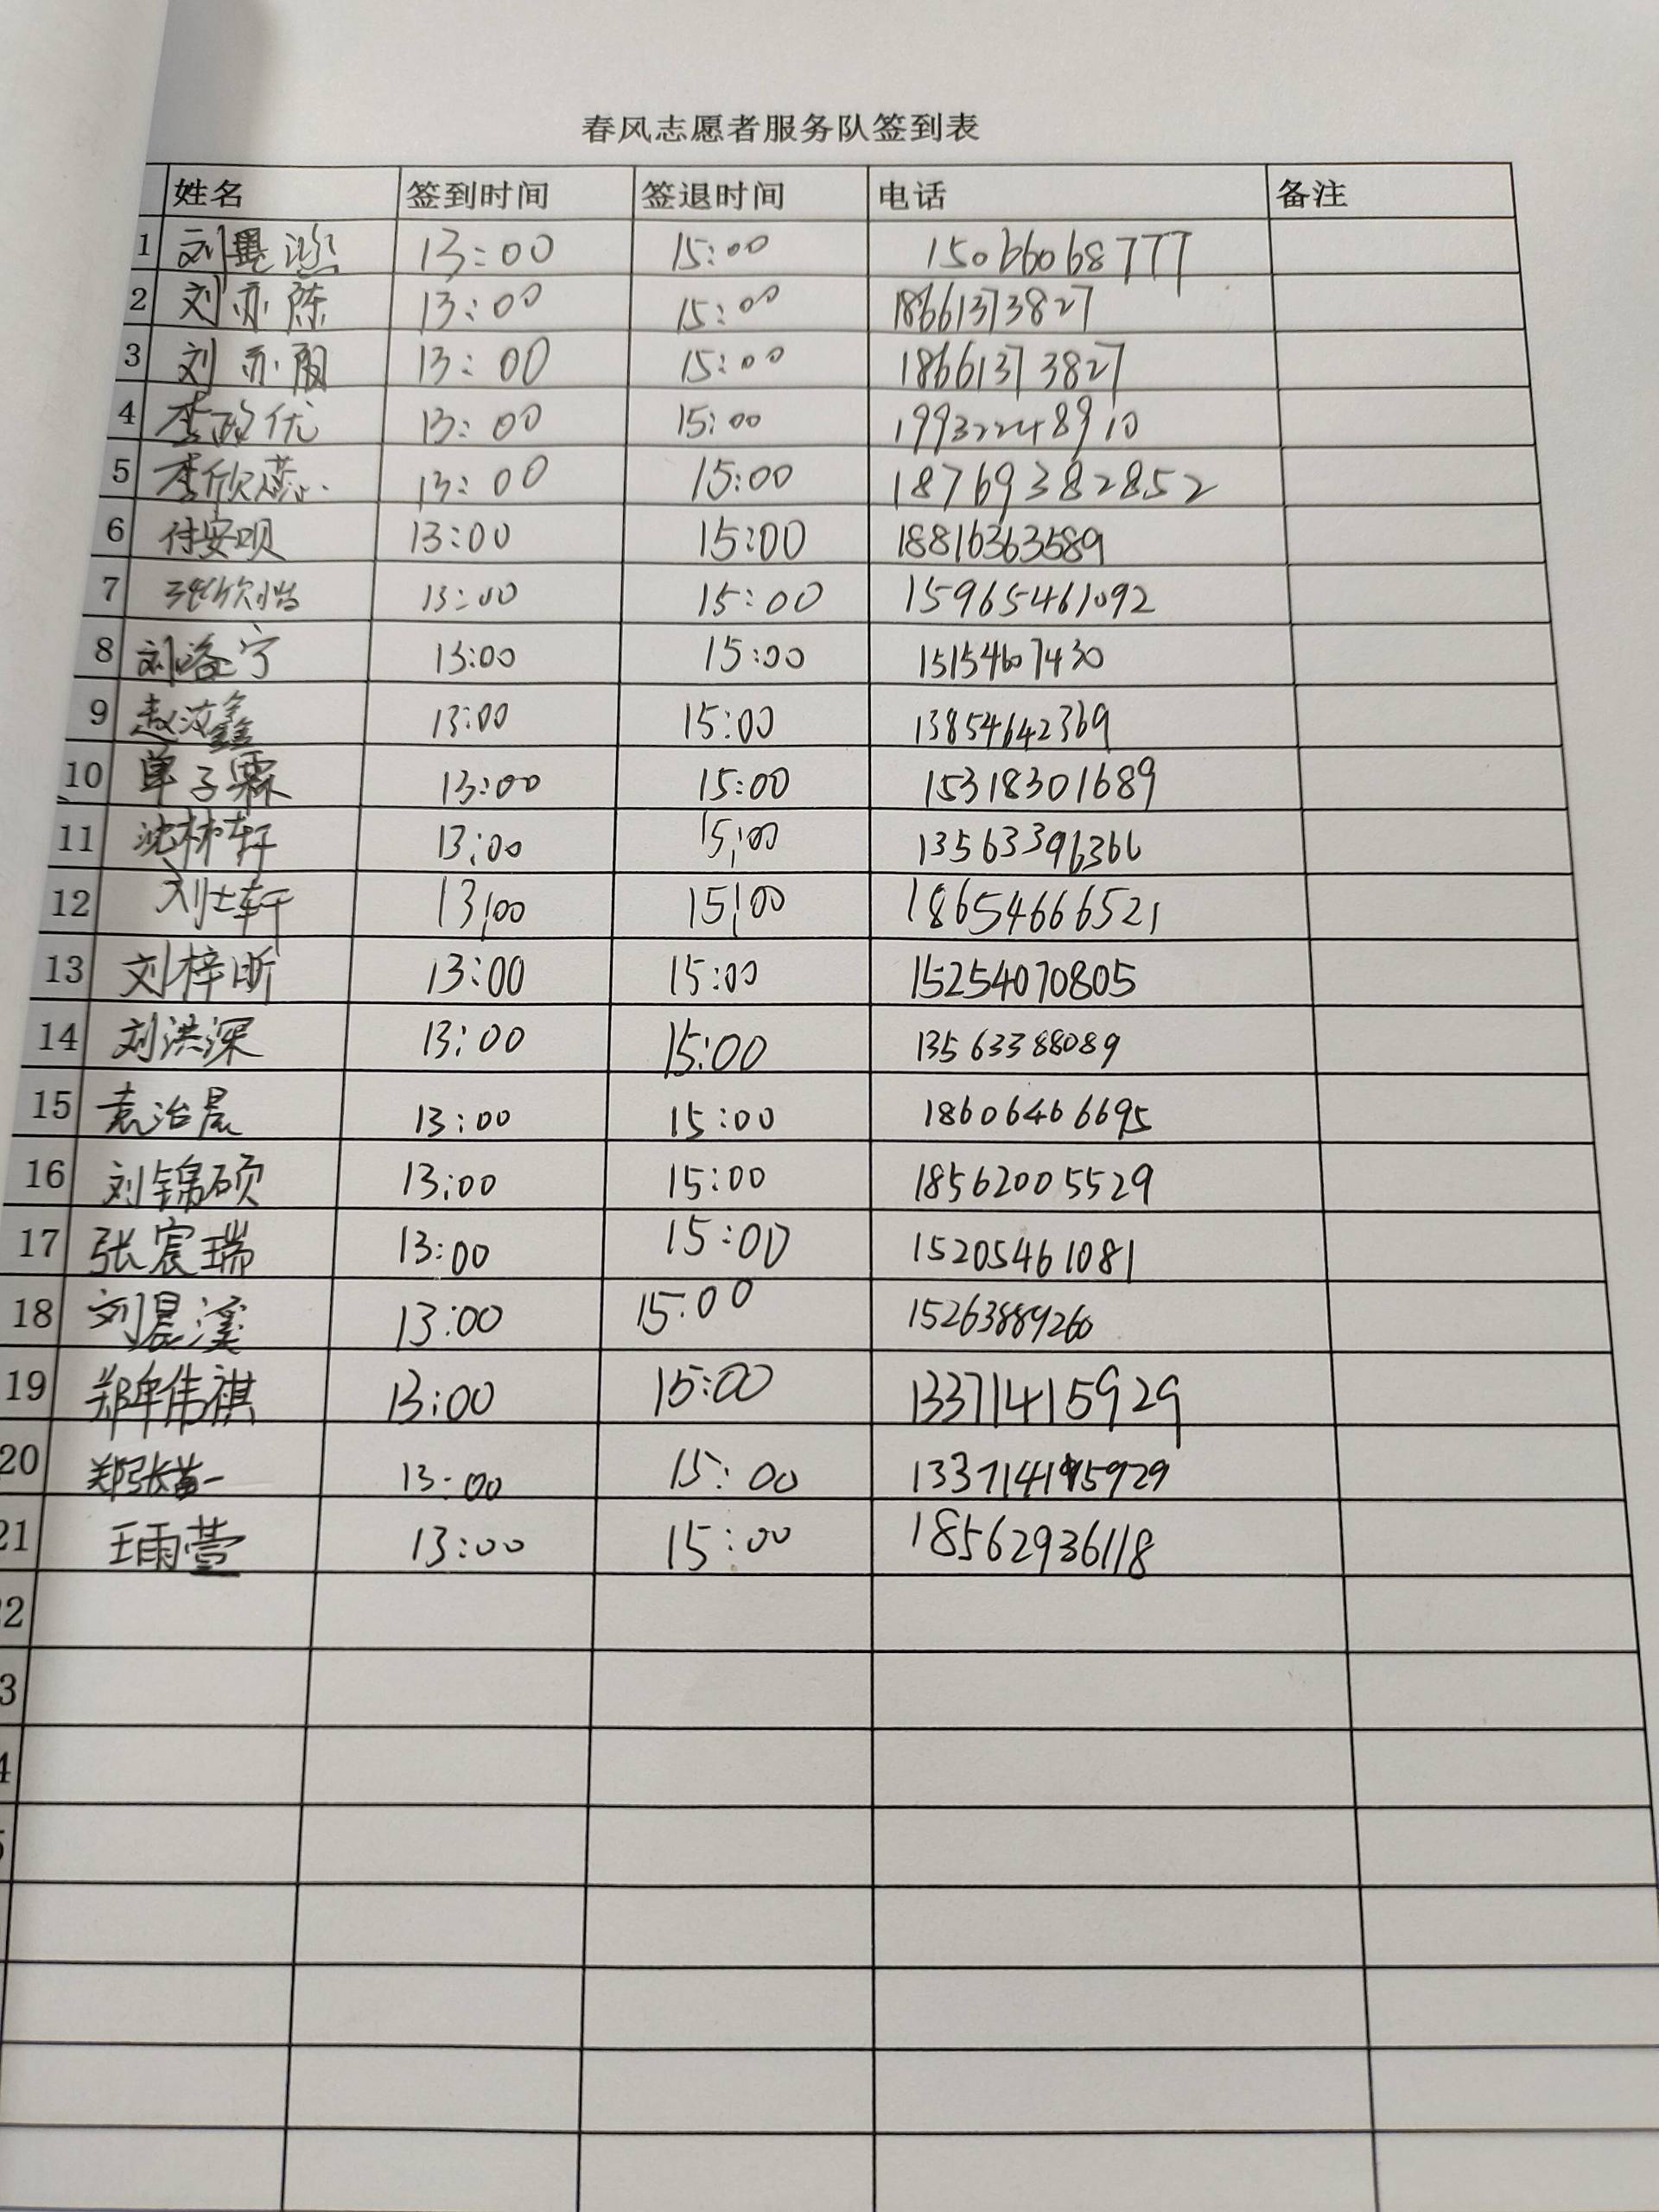 春风志愿者服务队签到表
姓名 签到时间 签退时间 电话 备注
1 刘 13:00 15:00 15066068777
2 刘亦陈 13:00 15:00 18661373827
3 刘亦 13:00 15:00 18661373827
4 李政优 13:00 15:00 19932248910
5 李欣燕 13:00 15:00 18769382852
6 付安呗 13:00 15:00 18816363589
7 张欣怡 13:00 15:00 15965461092
8 刘洛宁 13:00 15:00 15154607430
9 赵汝鑫 13:00 15:00 13854642369
10 单子霖 13:00 15:00 15318301689
11 沈林轩 13:00 15:00 13563396366
12 刘士轩 13:00 15:00 18654666521
13 刘梓昕 13:00 15:00 15254070805
14 刘洪深 13:00 15:00 13563388089
15 袁治晨 13:00 15:00 18606466695
16 刘锦硕 13:00 15:00 18562005529
17 张宸瑞 13:00 15:00 15205461081
18 刘晨溪 13:00 15:00 15263889260
19 郑牟伟祺 13:00 15:00 13371415929
20 郑张苗一 13:00 15:00
21 王雨萱 13:00 15:00 18562936118
2
3
4
5